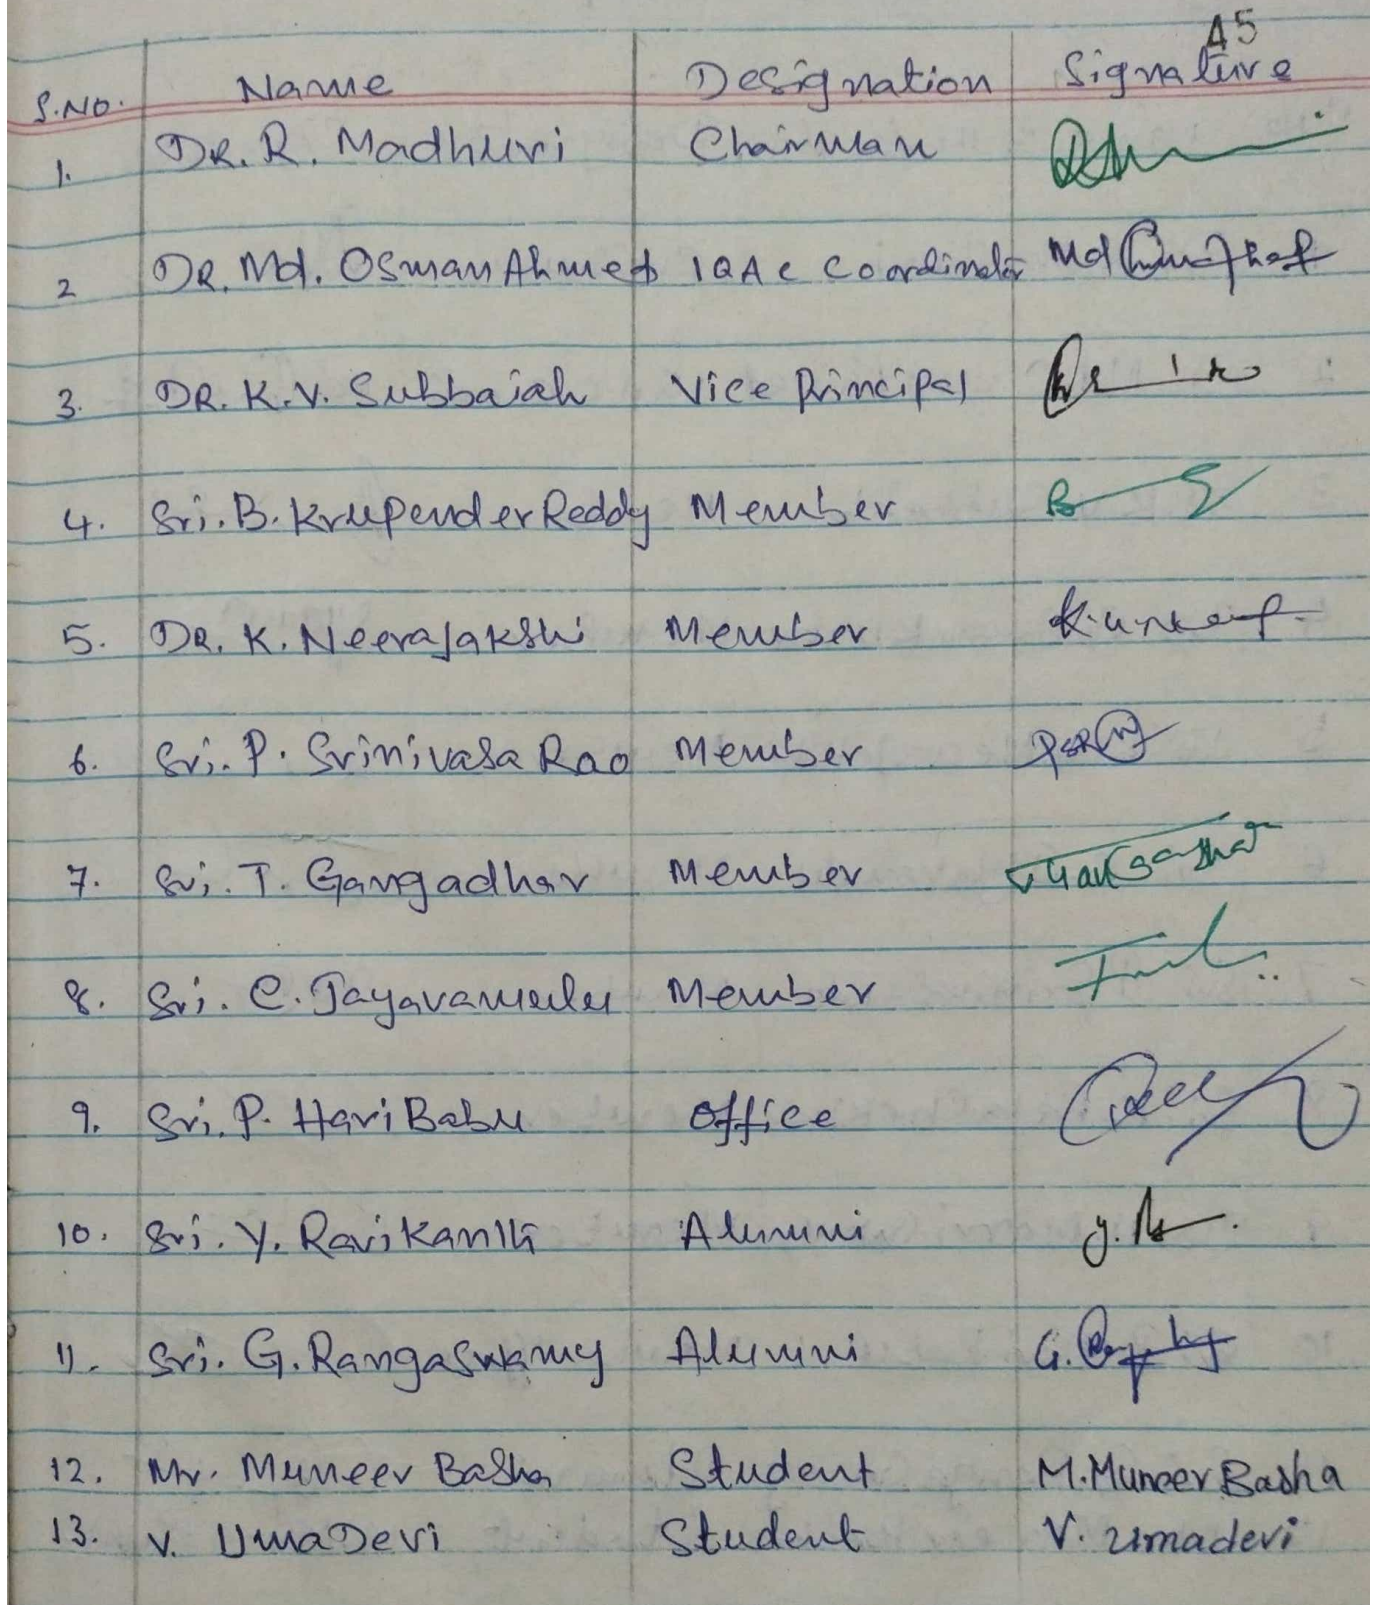 45
S.NO. Name Designation Signature
1. DR. R. Madhuri Chairman
2 DR. Md. Osman Ahmed IQAC Coordinator Md
3. DR. K.V. Subbaiah Vice Principal
4. Sri. B. Krupender Reddy Member
5. DR. K. Neerajakshi Member
6. Sri. P. Srinivasa Rao Member
7. Sri. T. Gangadhar Member
8. Sri. C. Jayavamulu Member
9. Sri. P. Hari Babu Office
10. Sri. Y. Ravikanth Alumni
11. Sri. G. Rangaswamy Alumni G.
12. Mr. Muneer Basha Student M. Muneer Basha
13. V. Uma Devi Student V. Umadevi